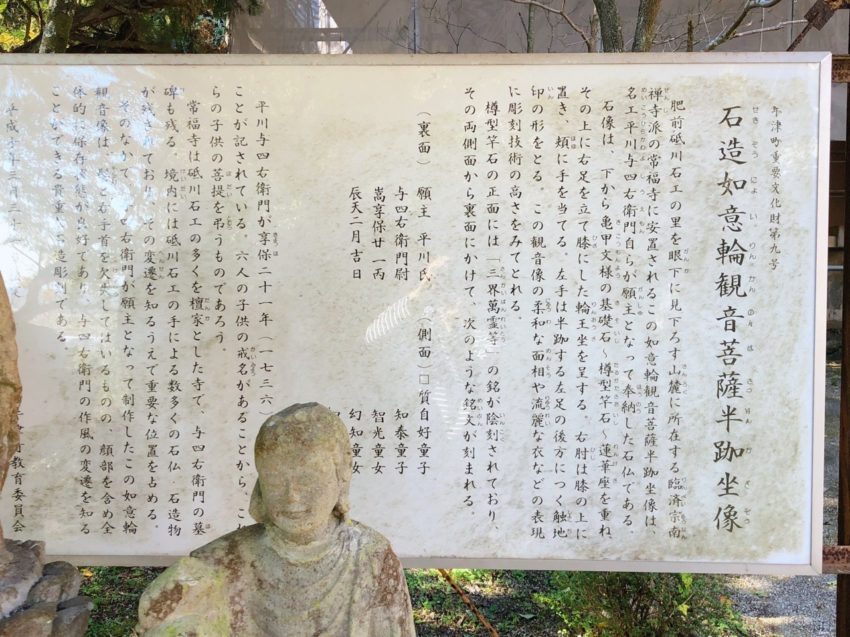 牛津町重要文化財第九号
石造如意輪観音菩薩半跏坐像
せきぞうにょいりんかんのんぼさつはんかざぞう
肥前砥川石工の里を眼下に見下ろす山麓に所在する臨済宗南
禅寺派の常福寺に安置されるこの如意輪観音菩薩半跏坐像は、
名工平川与四右衛門自らが願主となって奉納した石仏である。
石像は、下から亀甲文様の基礎石～樽型竿石～蓮華座を重ね、
その上に右足を立て膝にした輪王坐を呈する。右肘は膝の上に
置き、頬に手を当てる。左手は半跏する左足の後方につく触地
印の形をとる。この観音像の柔和な面相や流麗な衣などの表現
に彫刻技術の高さをみてとれる。
樽型竿石の正面には「三界萬霊等」の銘が陰刻されており、
その両側面から裏面にかけて、次のような銘文が刻まれる。
（裏面） 願主 平川氏 （側面）□質自好童子
与四右衛門尉 知泰童子
嵩享保廿一丙 智光童女
辰天二月吉日 幻知童女
平川与四右衛門が享保二十一年（一七三六）
ことが記されている。六人の子供の戒名があることから、これ
らの子供の菩提を弔うものであろう。
常福寺は砥川石工の多くを檀家とした寺で、与四右衛門の墓
碑も残る。境内には砥川石工の手による数多くの石仏・石造物
が残されており、その変遷を知るうえで重要な位置を占める。
そのなかで、 四右衛門が願主となって制作したこの如意輪
観音像は、 と右手首を欠失してはいるものの、顔部を含め全
体的に保存状態が良好であり、与四右衛門の作風の変遷を知る
ことができる貴重な石造彫刻である。
平成 年三月二十
町教育委員会